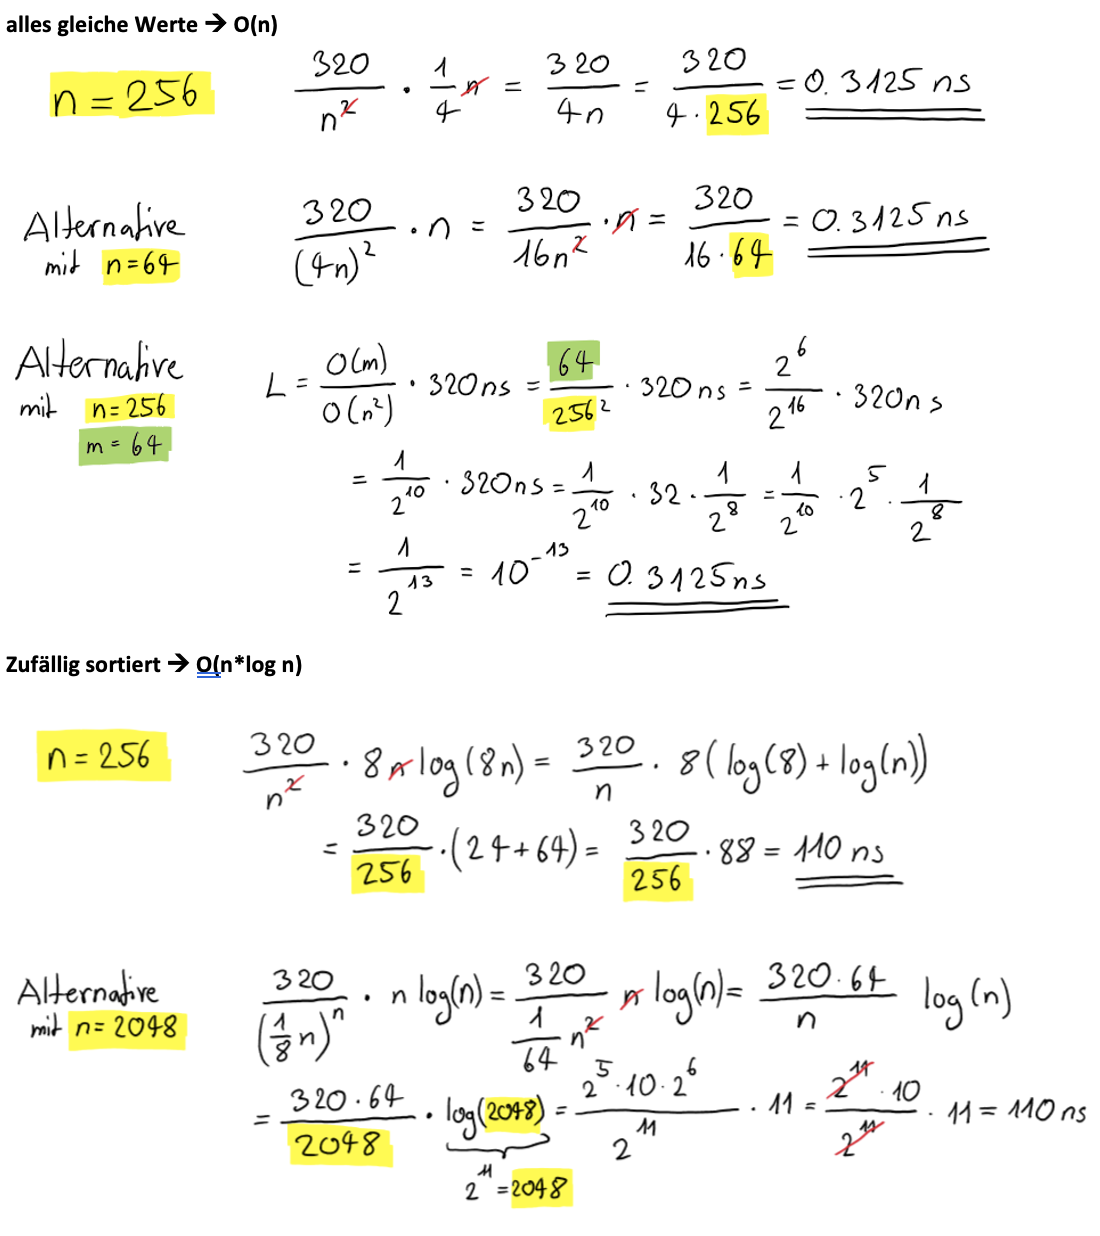 alles gleiche Werte → O(n)
n = 256
320/n² · 1/4 n = 320/4n = 320/(4·256) = 0.3125 ns
Alternative
mit n=64
320/(4n)² · n = 320/16n² · n = 320/(16·64) = 0.3125 ns
Alternative
mit n=256
m = 64
L = O(m)/O(n²) · 320ns = 64/256² · 320ns = 2⁶/2¹⁶ · 320ns
= 1/2¹⁰ · 320ns = 1/2¹⁰ · 32 · 1/2⁸ = 1/2¹⁰ · 2⁵ · 1/2⁸
= 1/2¹³ = 10⁻¹³ = 0.3125ns
Zufällig sortiert → O(n*log n)
n = 256
320/n² · 8n log(8n) = 320/n · 8(log(8) + log(n))
= 320/256 · (24+64) = 320/256 · 88 = 110 ns
Alternative
mit n=2048
320/(1/8 n)ⁿ · n log(n) = 320/(1/64 n²) n log(n) = 320·64/n log(n)
= 320·64/2048 · log(2048) = 2⁵·10·2⁶/2¹¹ · 11 = 2¹¹·10/2¹¹ · 11 = 110 ns
2¹¹ = 2048